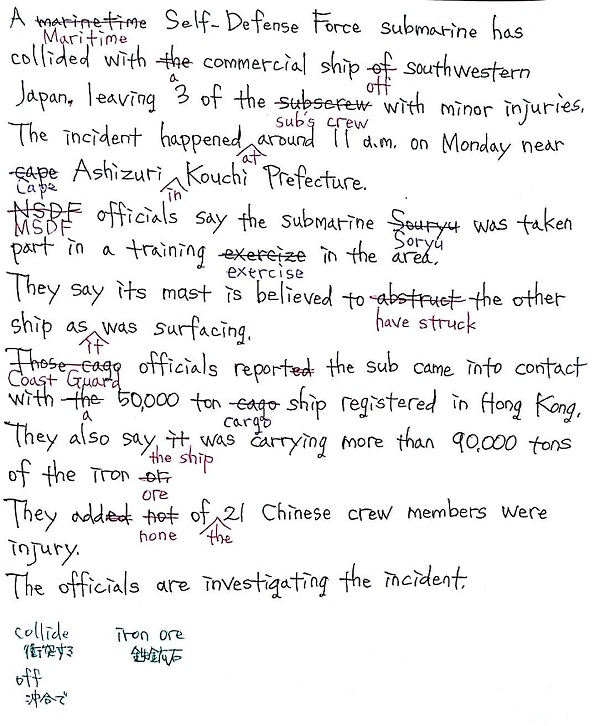 A marinetime Self-Defense Force submarine has
Maritime
collided with the commercial ship of southwestern
a off
Japan, leaving 3 of the subscrew with minor injuries.
sub's crew
The incident happened around 11 a.m. on Monday near
at
cape Ashizuri Kouchi Prefecture.
Cape in
NSDF officials say the submarine Souryu was taken
MSDF Soryu
part in a training exercize in the area.
exercise
They say its mast is believed to abstruct the other
have struck
ship as was surfacing.
it
Those cago officials reported the sub came into contact
Coast Guard
with the 50,000 ton cago ship registered in Hong Kong.
a cargo
They also say it was carrying more than 90,000 tons
the ship
of the iron or
ore
They added not of 21 Chinese crew members were
none the
injury.
The officials are investigating the incident.
collide iron ore
衝突する 鉄鉱石
off
沖合で